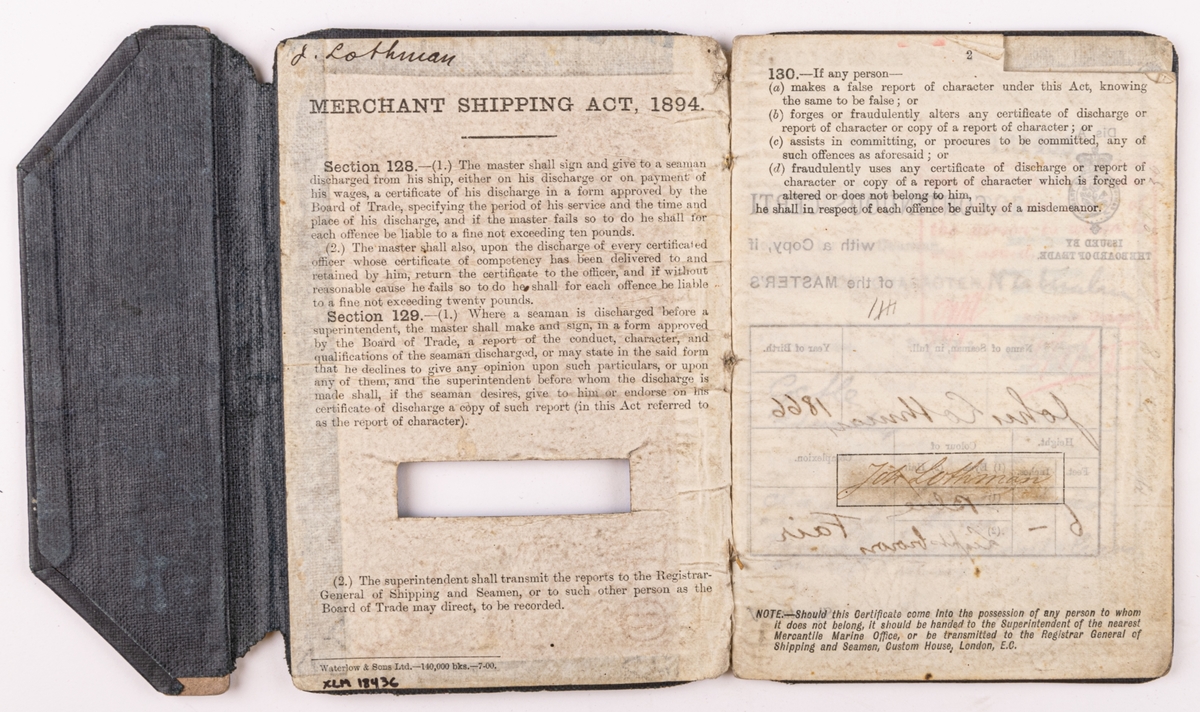 J. Lothman
MERCHANT SHIPPING ACT, 1894.
Section 128.—(1.) The master shall sign and give to a seaman
discharged from his ship, either on his discharge or on payment of
his wages, a certificate of his discharge in a form approved by the
Board of Trade, specifying the period of his service and the time and
place of his discharge, and if the master fails so to do he shall for
each offence be liable to a fine not exceeding ten pounds.
(2.) The master shall also, upon the discharge of every certificated
officer whose certificate of competency has been delivered to and
retained by him, return the certificate to the officer, and if without
reasonable cause he fails so to do he shall for each offence be liable
to a fine not exceeding twenty pounds.
Section 129.—(1.) Where a seaman is discharged before a
superintendent, the master shall make and sign, in a form approved
by the Board of Trade, a report of the conduct, character, and
qualifications of the seaman discharged, or may state in the said form
that he declines to give any opinion upon such particulars, or upon
any of them, and the superintendent before whom the discharge is
made shall, if the seaman desires, give to him or endorse on his
certificate of discharge a copy of such report (in this Act referred to
as the report of character).
(2.) The superintendent shall transmit the reports to the Registrar-
General of Shipping and Seamen, or to such other person as the
Board of Trade may direct, to be recorded.
Waterlow & Sons Ltd.—140,000 bks.—7-00.
XLM 18436
2
130.—If any person—
(a) makes a false report of character under this Act, knowing
the same to be false; or
(b) forges or fraudulently alters any certificate of discharge or
report of character or copy of a report of character; or
(c) assists in committing, or procures to be committed, any of
such offences as aforesaid; or
(d) fraudulently uses any certificate of discharge or report of
character or copy of a report of character which is forged or
altered or does not belong to him,
he shall in respect of each offence be guilty of a misdemeanor.
ISSUED BY
THE BOARD OF TRADE.
with a Copy, if
of the MASTER'S
Name of Seaman, in full.
Year of Birth.
John Lothman
1866
Height.
Colour of
Complexion.
Feet.
Inches.
Jon Lothman
6 —
Blue
Light brown
Fair
NOTE.—Should this Certificate come into the possession of any person to whom
it does not belong, it should be handed to the Superintendent of the nearest
Mercantile Marine Office, or be transmitted to the Registrar General of
Shipping and Seamen, Custom House, London, E.C.